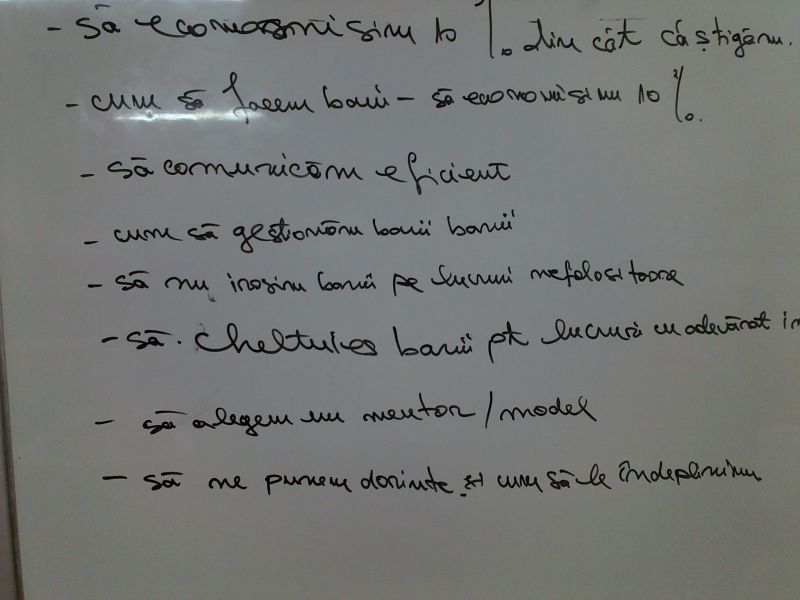 - să economisim 10 % din cât câștigăm.
- cum să facem banii - să economisim 10 %.
- să comunicăm eficient
- cum să gestionăm banii banii
- să nu irosim banii pe lucruri nefolositoare
- să cheltuies banii pt lucruri cu adevărat
- să alegem un mentor / model
- să ne punem dorințe și cum să le îndeplinim